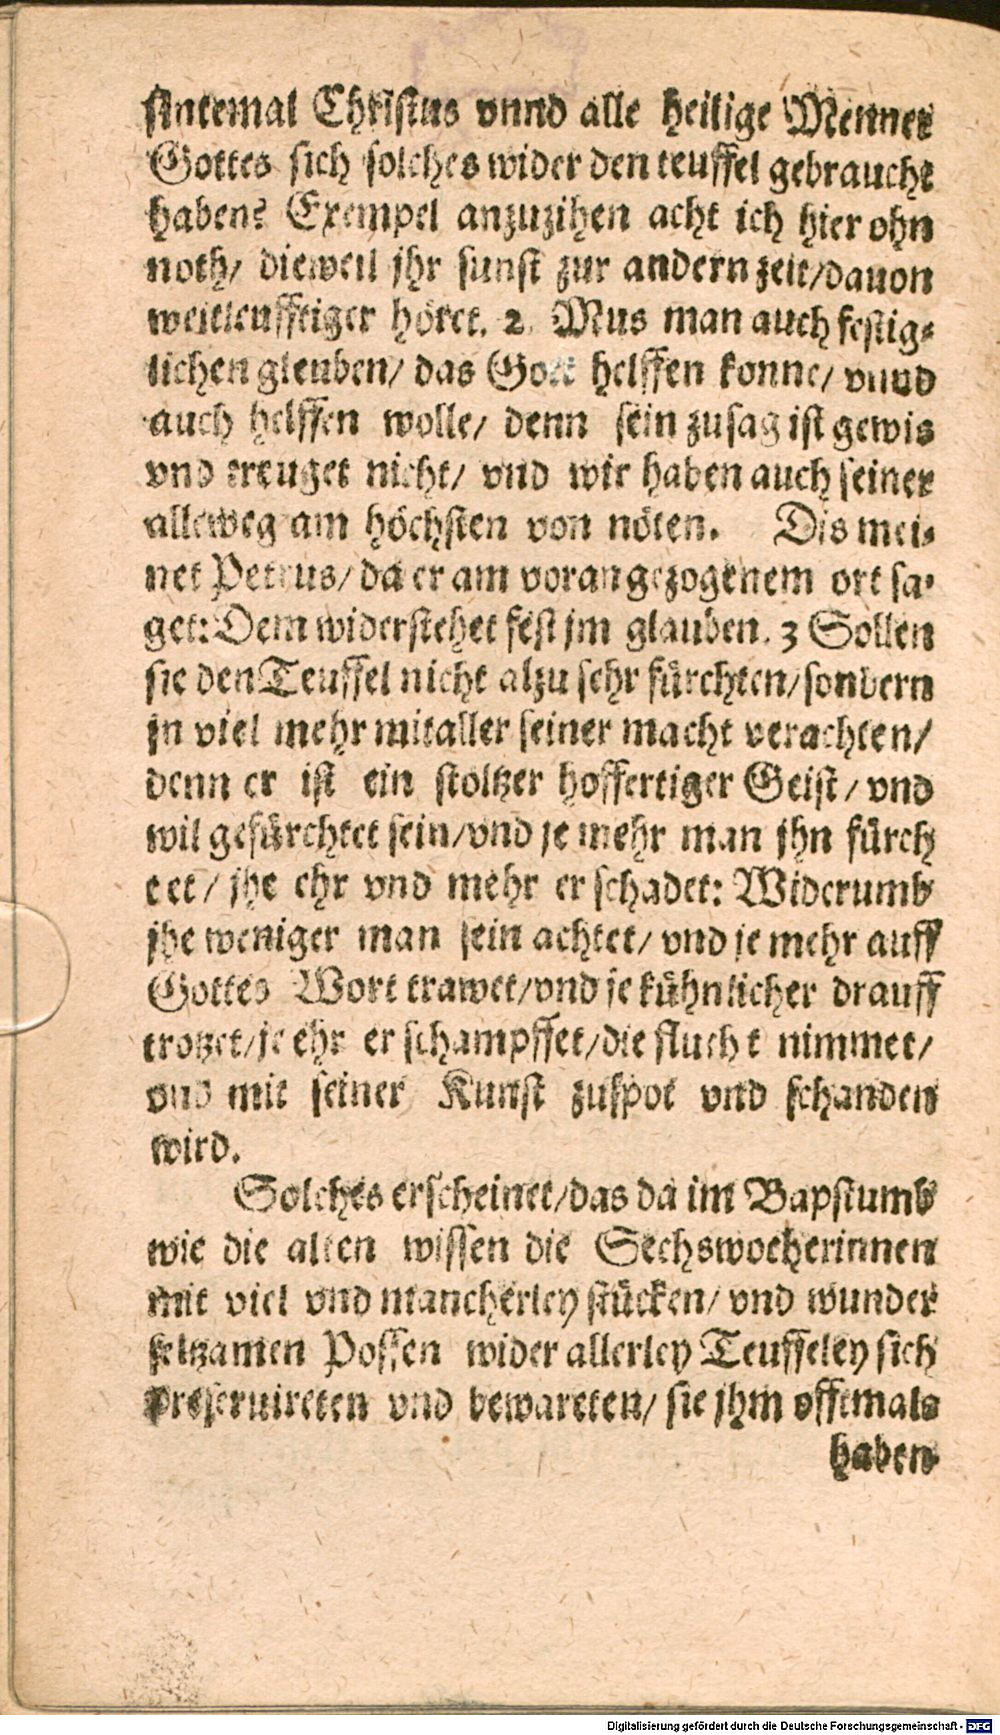 sintemal Christus vnnd alle heilige Menner
Gottes sich solches wider den teuffel gebraucht
haben: Exempel anzuzihen acht ich hier ohn
noth/ dieweil jhr sunst zur andern zeit/dauon
weitleufftiger höret. 2. Mus man auch festig-
lichen gleuben/ das Gott helffen konne/ vnnd
auch helffen wolle/ denn sein zusag ist gewis
vnd treuget nicht/ vnd wir haben auch seiner
alleweg am höchsten von nöten. Dis mei-
net Petrus/da er am vorangezogenem ort sa-
get: Dem widerstehet fest jm glauben. 3 Sollen
sie den Teuffel nicht alzu sehr fürchten/sondern
jn viel mehr mit aller seiner macht verachten/
denn er ist ein stoltzer hoffertiger Geist/ vnd
wil gefürchtet sein/vnd je mehr man jhn fürch
tet/ jhe ehr vnd mehr er schadet: Widerumb
jhe weniger man sein achtet/ vnd je mehr auff
Gottes Wort trawet/vnd je kühnlicher drauff
trotzet/je ehr er schampffet/die flucht nimmet/
vnd mit seiner Kunst zuspot vnd schanden
wird.
Solches erscheinet/das da im Bapstumb
wie die alten wissen die Sechswocherinnen
mit viel vnd mancherley stücken/ vnd wunder
seltzamen Possen wider allerley Teuffeley sich
preseruireten vnd bewareten/ sie jhm offtmals
haben
Digitalisierung gefördert durch die Deutsche Forschungsgemeinschaft - DFG